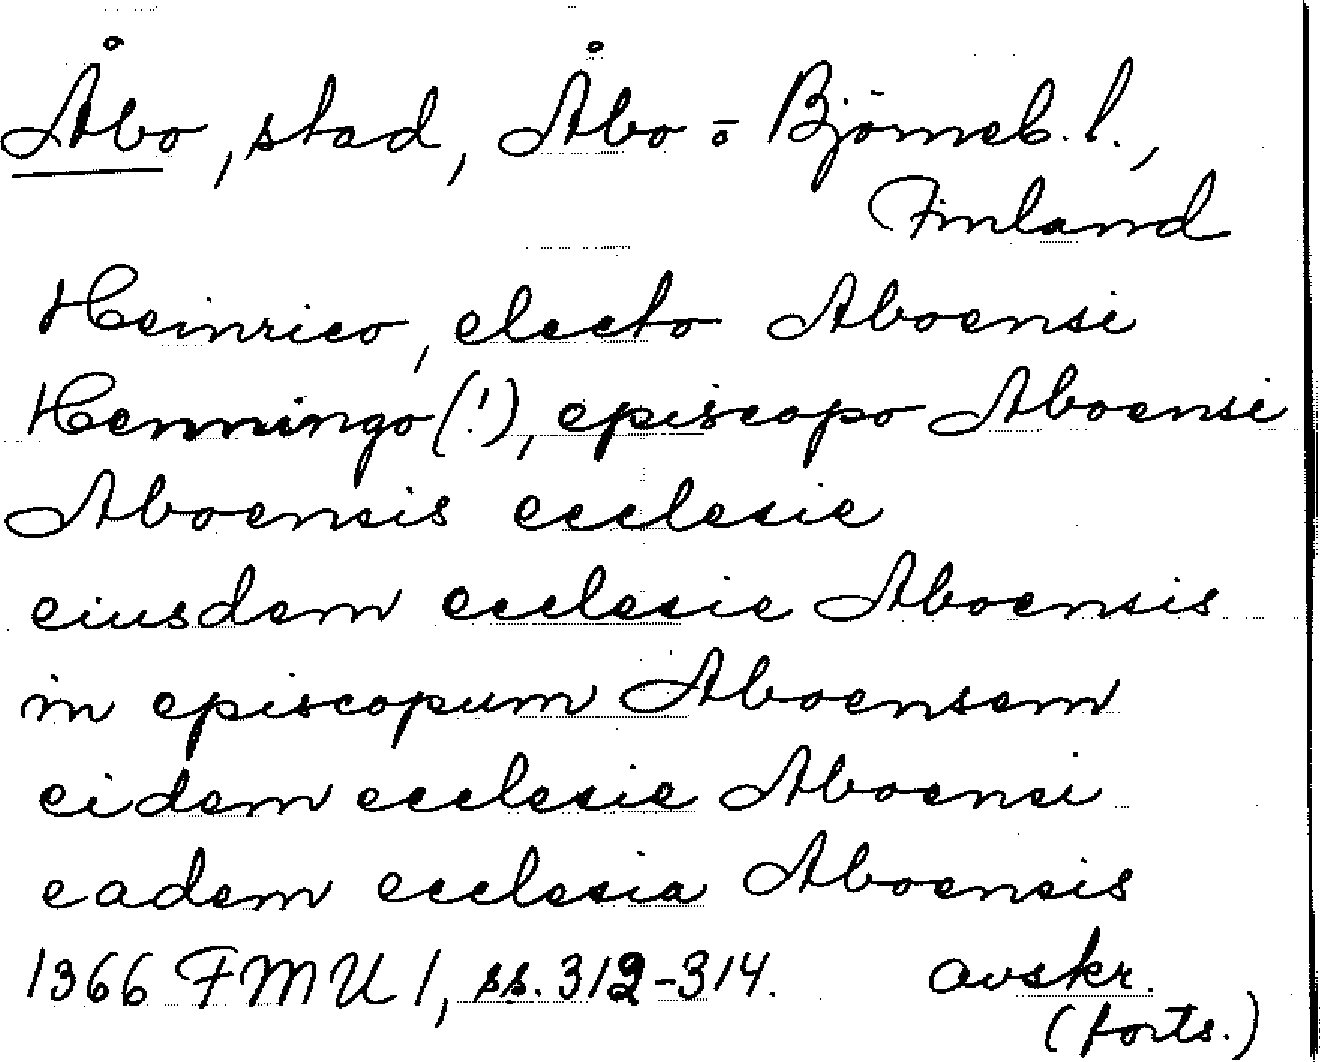 Åbo, stad, Åbo = Björneb. l.,
Finland
Heinrico, electo Aboensi
Hemmingo (!), episcopo Aboensi
Aboensis ecclesie
eiusdem ecclesie Aboensis
in episcopum Aboensem
eidem ecclesie Aboensi
eadem ecclesia Aboensis
1366 FMU 1, ss. 312-314. avskr.
(forts.)